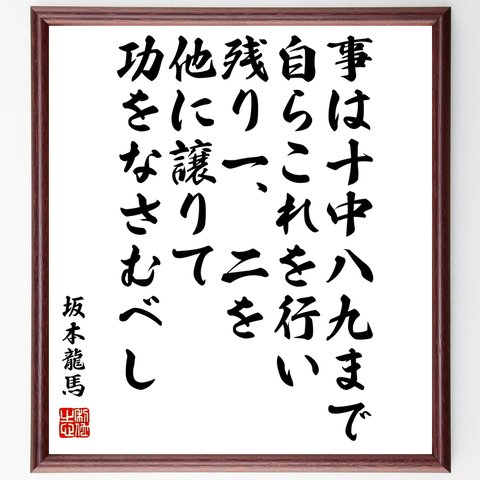 事は十中八九まで
自らこれを行い
残り一、二を
他に譲りて
功をなさむべし
坂本龍馬